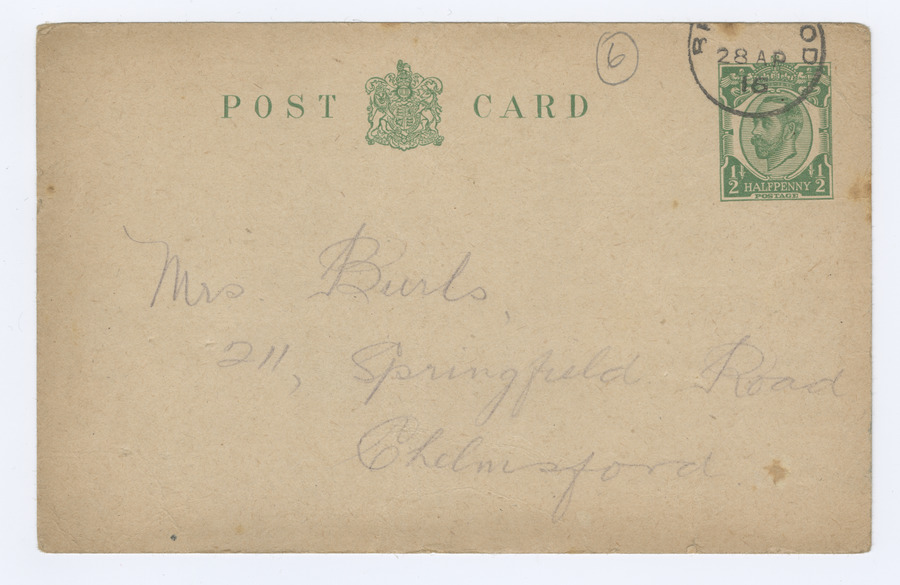 POST CARD
6
28 AP
16
1/2 HALFPENNY 1/2
POSTAGE
Mrs Burls,
211, Springfield Road
Chelmsford